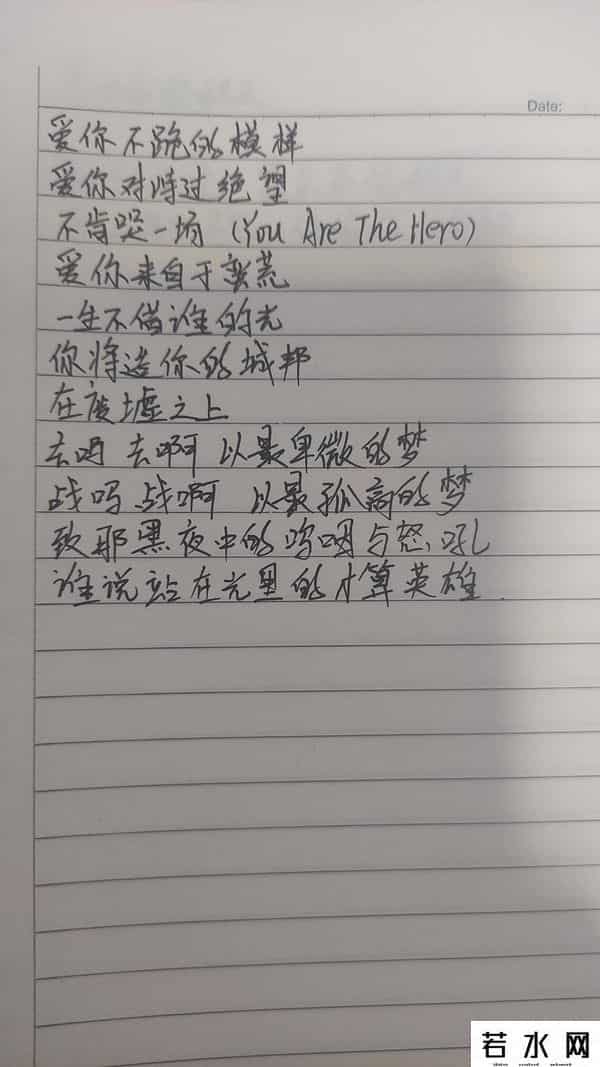 Date:
爱你不跪的模样
爱你对峙过绝望
不肯哭一场 (You Are The Hero)
爱你来自于蛮荒
一生不借谁的光
你将造你的城邦
在废墟之上
去吗 去啊 以最卑微的梦
战吗 战啊 以最孤高的梦
致那黑夜中的呜咽与怒吼
谁说站在光里的才算英雄
若水网